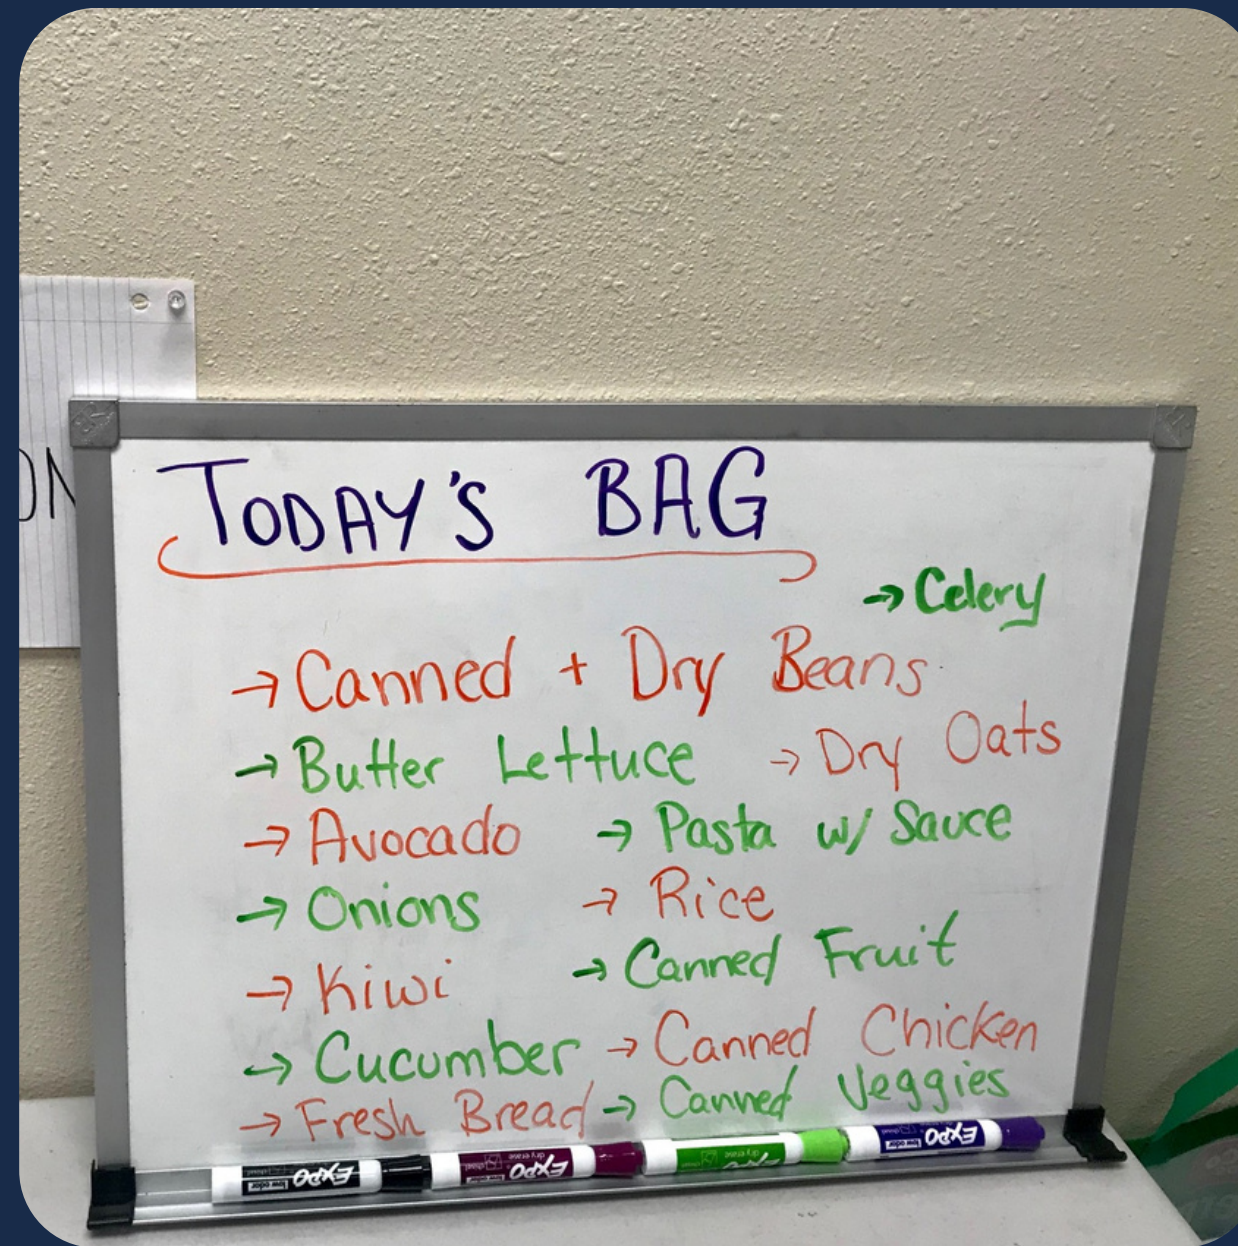 ON
TODAY'S BAG
→ Celery
→ Canned + Dry Beans
→ Butter Lettuce → Dry Oats
→ Avocado → Pasta w/ Sauce
→ Onions → Rice
→ Kiwi → Canned Fruit
→ Cucumber → Canned Chicken
→ Fresh Bread → Canned Veggies
EXPO low odor
EXPO dry erase
EXPO dry erase
EXPO low odor